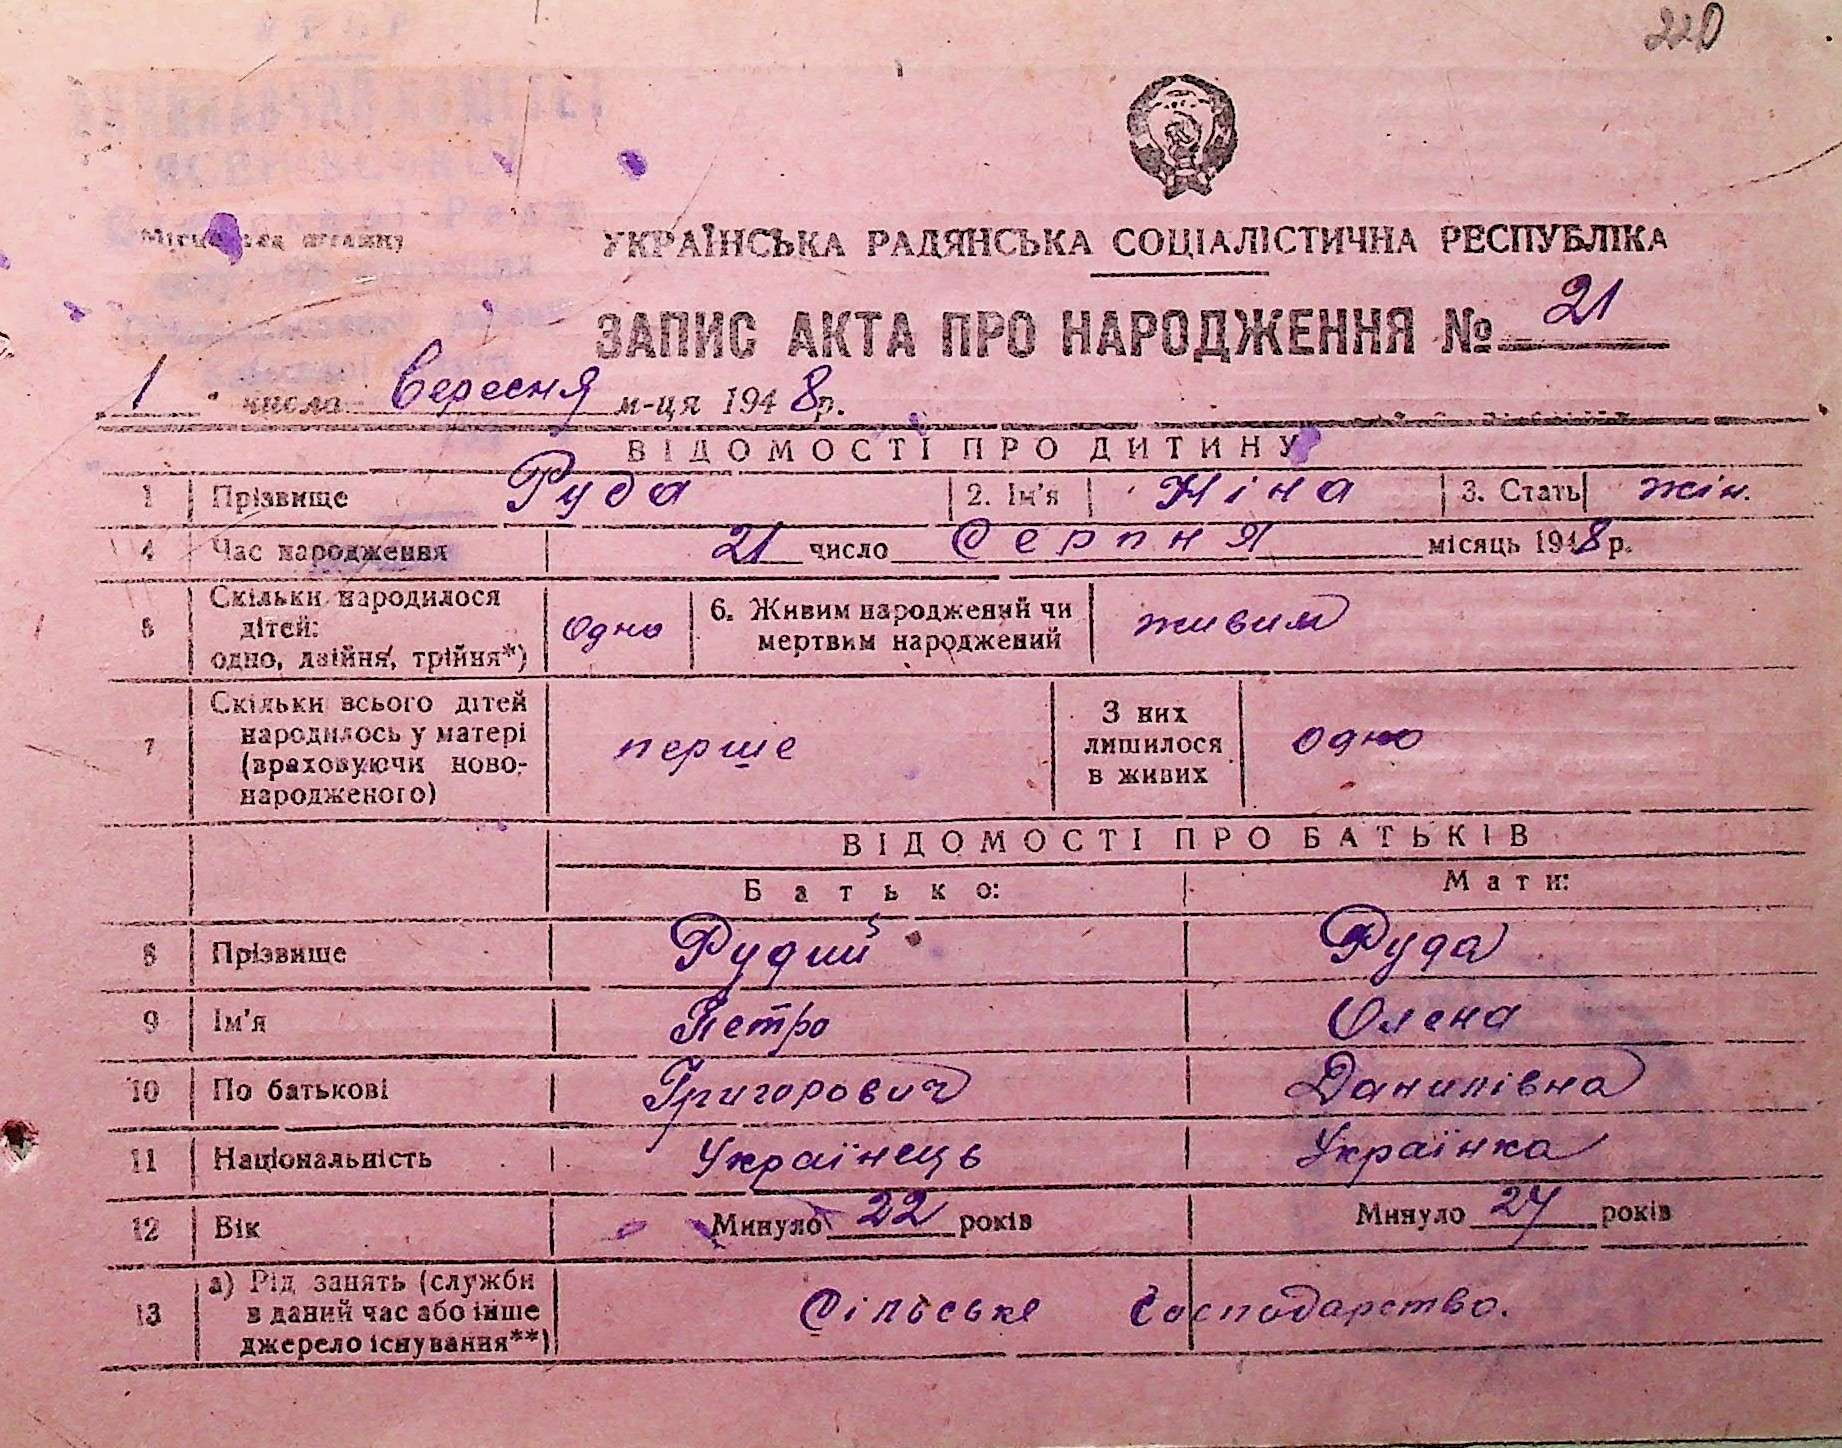 220
УКРАЇНСЬКА РАДЯНСЬКА СОЦІАЛІСТИЧНА РЕСПУБЛІКА
ЗАПИС АКТА ПРО НАРОДЖЕННЯ № 21
1 число Вересня м-ця 1948р.
ВІДОМОСТІ ПРО ДИТИНУ
1 Прізвище Руда 2. Ім'я Ніна 3. Стать жін.
4 Час народження 21 число Серпня місяць 1948 р.
5 Скільки народилося дітей: одно, двійня, трійня*) одно 6. Живим народжений чи мертвим народжений живим
7 Скільки всього дітей народилось у матері (враховуючи ново-народженого) перше З них лишилося в живих одно
ВІДОМОСТІ ПРО БАТЬКІВ
Батько: Мати:
8 Прізвище Рудий Руда
9 Ім'я Петро Олена
10 По батькові Григорович Данилівна
11 Національність Українець Українка
12 Вік Минуло 22 років Минуло 24 років
13 а) Рід занять (служби в даний час або інше джерело існування**) Сільське Господарство.